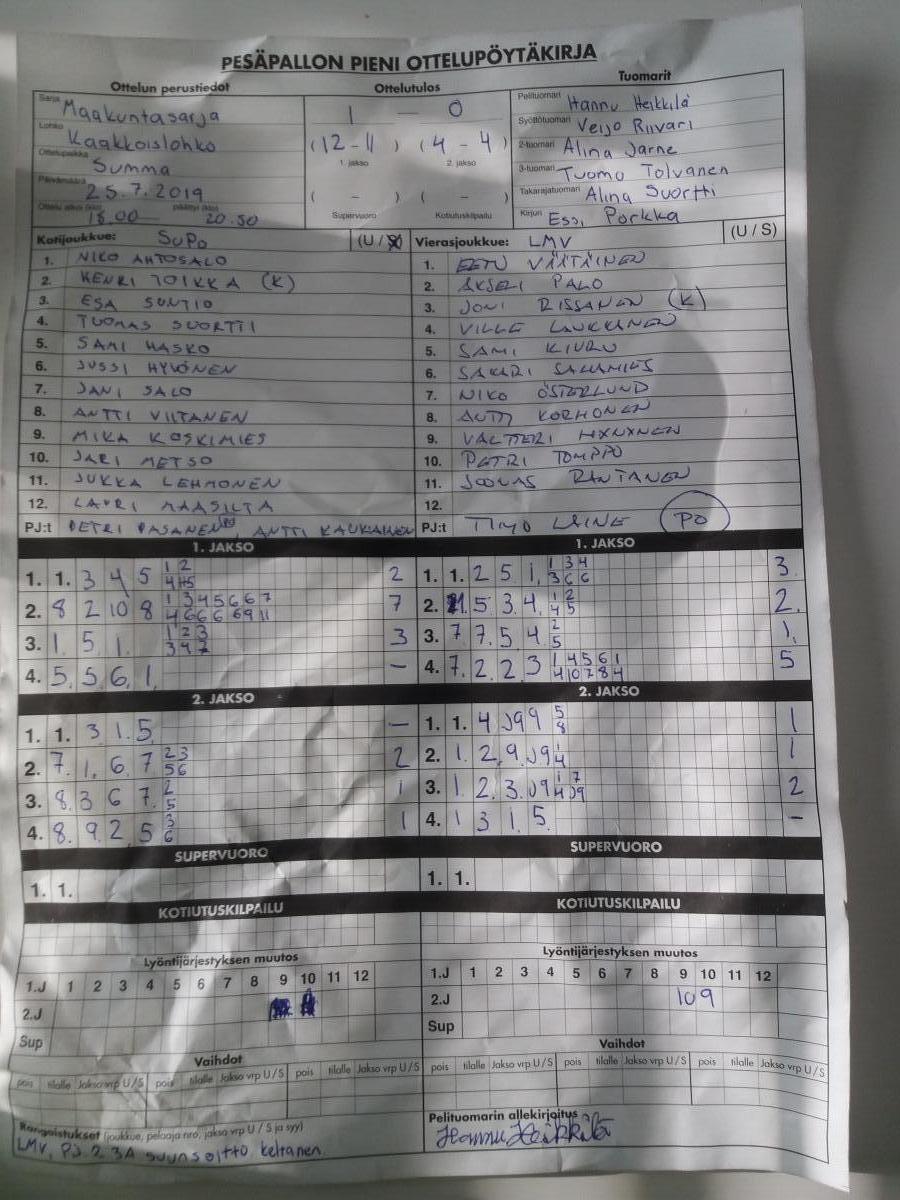 PESÄPALLON PIENI OTTELUPÖYTÄKIRJA
Ottelun perustiedot
Sarja Maakuntasarja
Lohko Kaakkoislohko
Ottelupaikka Summa
Päivämäärä 25.7.2019
Ottelu alkoi (klo) 18.00 päättyi (klo) 20.50
Ottelutulos
1 — 0
(12 - 11) (4 - 4)
1. jakso 2. jakso
( - ) ( - )
Supervuoro Kotiutuskilpailu
Tuomarit
Pelituomari Hannu Heikkilä
Syöttötuomari Veijo Riivari
2-tuomari Alina Jarne
3-tuomari Tuomo Tolvanen
Takarajatuomari Alina Suortti
Kirjuri Essi Porkka
Kotijoukkue: SuPo (U / S)
1. NIKO AHTOSALO
2. HENRI TOIKKA (K)
3. ESA SUNTIO
4. TUOMAS SUORTTI
5. SAMI HASKO
6. JUSSI HYVÖNEN
7. JANI SALO
8. ANTTI VIITANEN
9. MIKA KOSKIMIES
10. JARI METSO
11. JUKKA LEHMONEN
12. LAURI MAASILTA
PJ:t PETRI PASANEN, ANTTI KAUKIAINEN
Vierasjoukkue: LMV (U / S)
1. EETU VÄÄTÄINEN
2. AKSELI PALO
3. JONI RISSANEN (K)
4. VILLE LAUKKANEN
5. SAMI KIURU
6. SAKARI SALAMIES
7. NIKO ÖSTERLUND
8. ANTTI KORHONEN
9. VALTTERI HÄNNINEN
10. PETRI TOMPPO
11. JOONAS RANTANEN
12.
PJ:t TIMO LAINE PO
1. JAKSO
1. 1. 3 4 5 1 2 2
4 5
2. 8 2 10 8 1 3 4 5 6 6 7 7
4 6 6 6 6 9 11
3. 1. 5 1. 1 2 3 3
3 4 7
4. 5. 5 6. 1. –
1. JAKSO
1. 1. 2 5 1. 1 3 4 3.
3 6 6
2. 11. 5 3 4. 1 2 2.
4 5
3. 7 7. 5 4 2 1.
5
4. 7. 2 2 3 1 4 5 6 1 5
4 10 7 8 4
2. JAKSO
1. 1. 3 1. 5 –
2. 7. 1. 6 7 2 3 2
5 6
3. 8. 3 6 7. 2 1
5
4. 8. 9 2 5 3 1
6
2. JAKSO
1. 1. 4 J9 9 5 1
8
2. 1. 2 9. J9 1 1
4
3. 1. 2 3. J9 1 7 2
4 J9
4. 1 3 1. 5. –
SUPERVUORO
1. 1.
SUPERVUORO
1. 1.
KOTIUTUSKILPAILU
KOTIUTUSKILPAILU
Lyöntijärjestyksen muutos
1.J 1 2 3 4 5 6 7 8 9 10 11 12
2.J
Sup
Lyöntijärjestyksen muutos
1.J 1 2 3 4 5 6 7 8 9 10 11 12
2.J 10 9
Sup
Vaihdot
pois tilalle Jakso vrp U / S pois tilalle Jakso vrp U / S pois tilalle Jakso vrp U / S
Vaihdot
pois tilalle Jakso vrp U / S pois tilalle Jakso vrp U / S pois tilalle Jakso vrp U / S
Rangaistukset (joukkue, pelaaja nro, jakso vrp U / S ja syy)
LMV, PJ. 2 3A suunsoitto keltanen
Pelituomarin allekirjoitus
Hannu Heikkilä